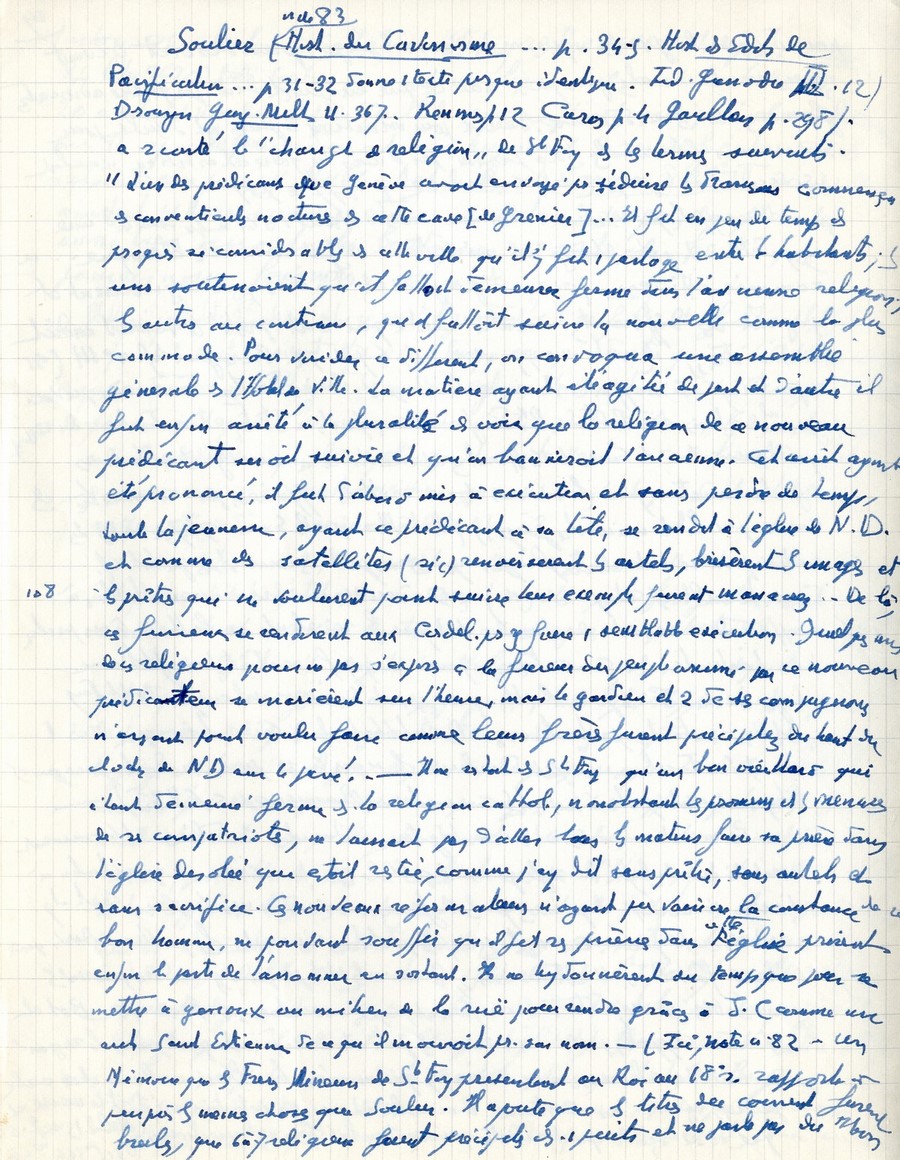 note 83
Soulier (Hist. du Calvinisme ... p. 34-5. Hist des Edits de
Pacification ... p 31-32 donne 1 texte presque identique. III . 12)
Drouyn Guy. Milit II. 367. p 12 p. h p. 298).
a raconté le "changt de religion" de Ste Foy ds les termes suivants.
"L'un des prédicans que Genève avoit envoyé pr séduire les Français commença
des conventicules nocturnes ds cette cave [de Grenier]... Et fit en peu de temps des
progrès si considérables ds cette ville qu'il y fut 1 partage entre les habitants; les
uns soutenoient qu'il falloit demeurer ferme dans l'ancienne religion,
les autres au contraire, qu'il falloit suivre la nouvelle comme la plus
commode. Pour vuider ce différent, on convoqua une assemblée
générale ds l'Hôtel de Ville. La matière ayant été agitée de part et d'autre il
fut enfin arrêté à la pluralité des voix que la religion de ce nouveau
prédicant seroit suivie et qu'on banniroit l'ancienne. Cet arrêt ayant
été prononcé, il fut d'abord mis à exécution et sans perdre de temps,
toute la jeunesse, ayant ce prédicant à sa tête, se rendit à l'église de N.D.
et comme des satellites (sic) renversèrent les autels, brisèrent les images et
108 les prêtres qui ne voulurent point suivre leur exemple furent massacrés .. De là,
ces furieux se rendirent aux Cordel. pr y faire 1 semblable exécution. Quelques uns
des religieux pour ne pas s'exposer à la fureur du peuple animé par ce nouveau
prédicant se marièrent sur l'heure, mais le gardien et 2 de ses compagnons
n'ayant point voulu faire comme leurs frères furent précipités du haut du
clocher de ND sur le pavé. .— Il ne restoit ds Ste Foy qu'un bon vieillard qui
étant demeuré ferme ds la religion cathol., nonobstant les promesses et les menaces
de ses compatriotes, ne laissoit pas d'aller tous les matins faire sa prière dans
l'église désolée qui estoit restée, comme j'ay dit sans prêtre, sans autels et
sans sacrifice. Ces nouveaux réformateurs n'ayant pu vaincre la constance de ce
bon homme, ne pouvant souffrir qu'il fit ses prières dans cette église prirent
enfin le parti de l'assommer en sortant. Ils ne luy donnèrent du temps que pour se
mettre à genoux au milieu de la ruë pour rendre grâces à J. C comme un
autre Saint Estienne de ce qu'il mouroit pr son nom. — (Ici, note n. 82 - Un
Mémoire que les Frères Mineurs de Ste Foy présentent au Roi au 18e s. rapporte à
peu près les mêmes choses que Soulier. Il ajoute que les titres du couvent furent
brulés, que 6 à 7 religieux furent précipités ds 1 puits et ne parle pas du